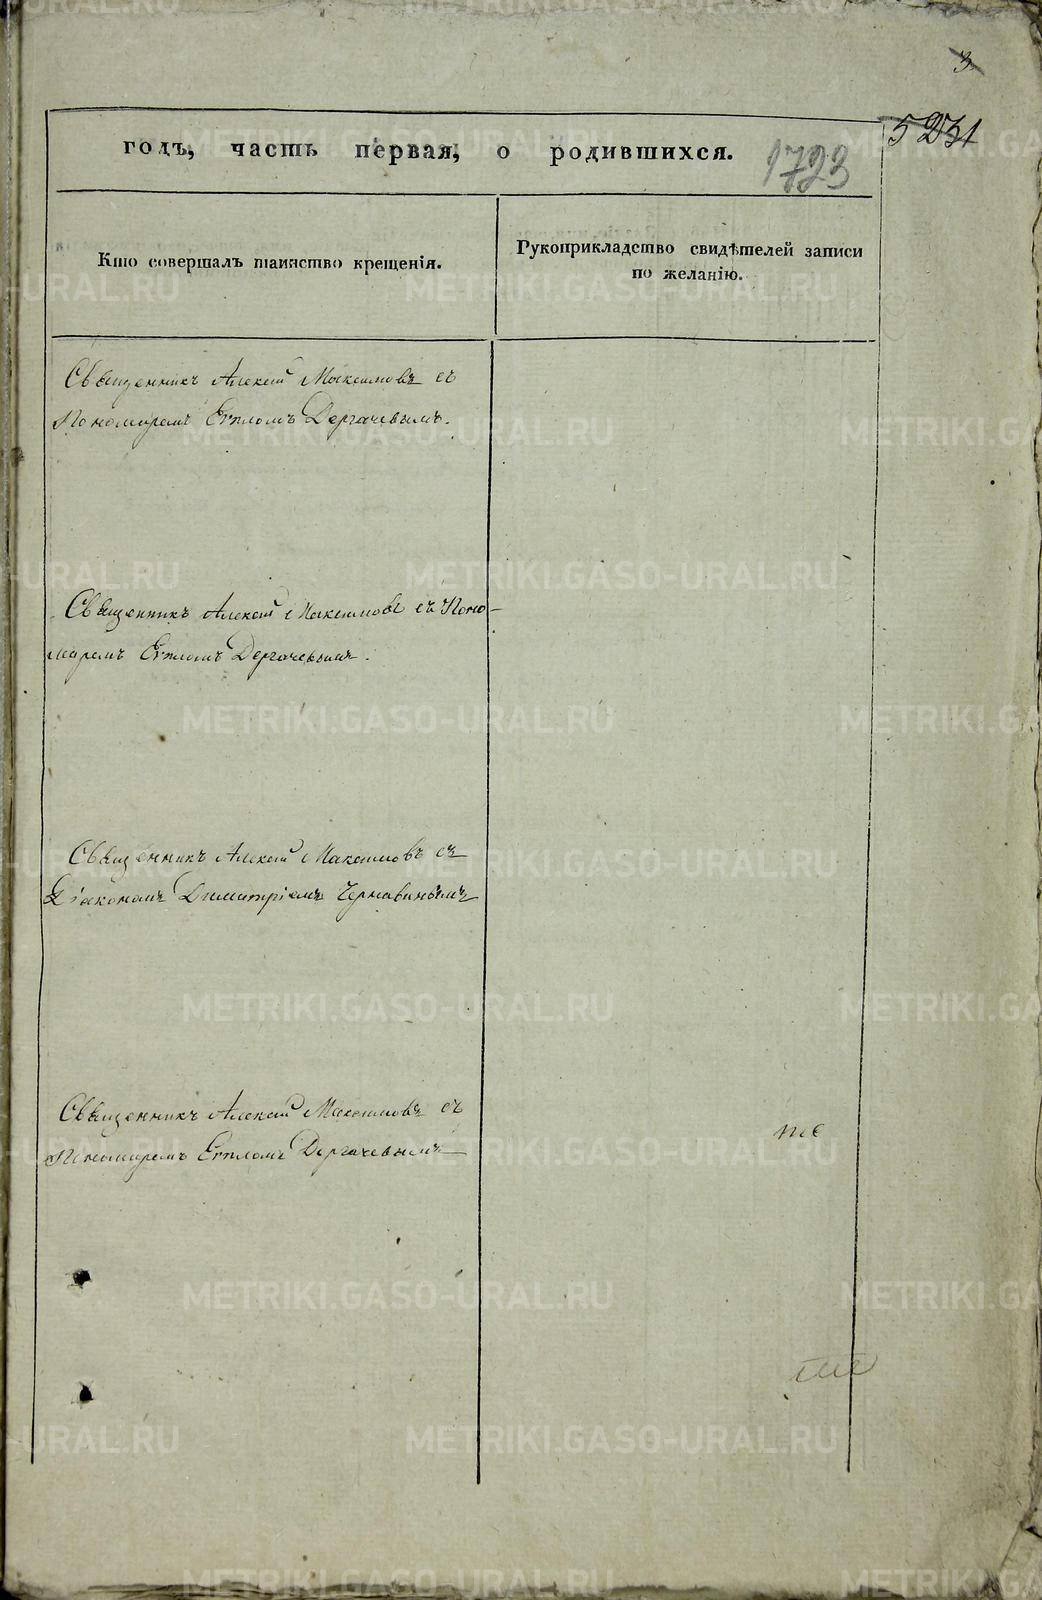 3
5 231
годъ, часть первая, о родившихся.
1723
Кто совершалъ таинство крещенія.
Рукоприкладство свидѣтелей записи
по желанію.
Священникъ Алексій Максимовъ съ
Пономаремъ Егоромъ Дергачевымъ.
Священникъ Алексій Максимовъ съ Поно-
маремъ Дергачевымъ.
Священникъ Алексій Максимовъ съ
Діакономъ Димитріемъ Чернавинымъ
Священникъ Алексій Максимовъ съ
Пономаремъ Дергачевымъ
METRIKI.GASO-URAL.RU